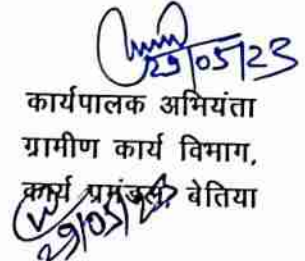 29/05/23
कार्यपालक अभियंता
ग्रामीण कार्य विभाग,
कार्य प्रमंडल, बेतिया
29/05/23